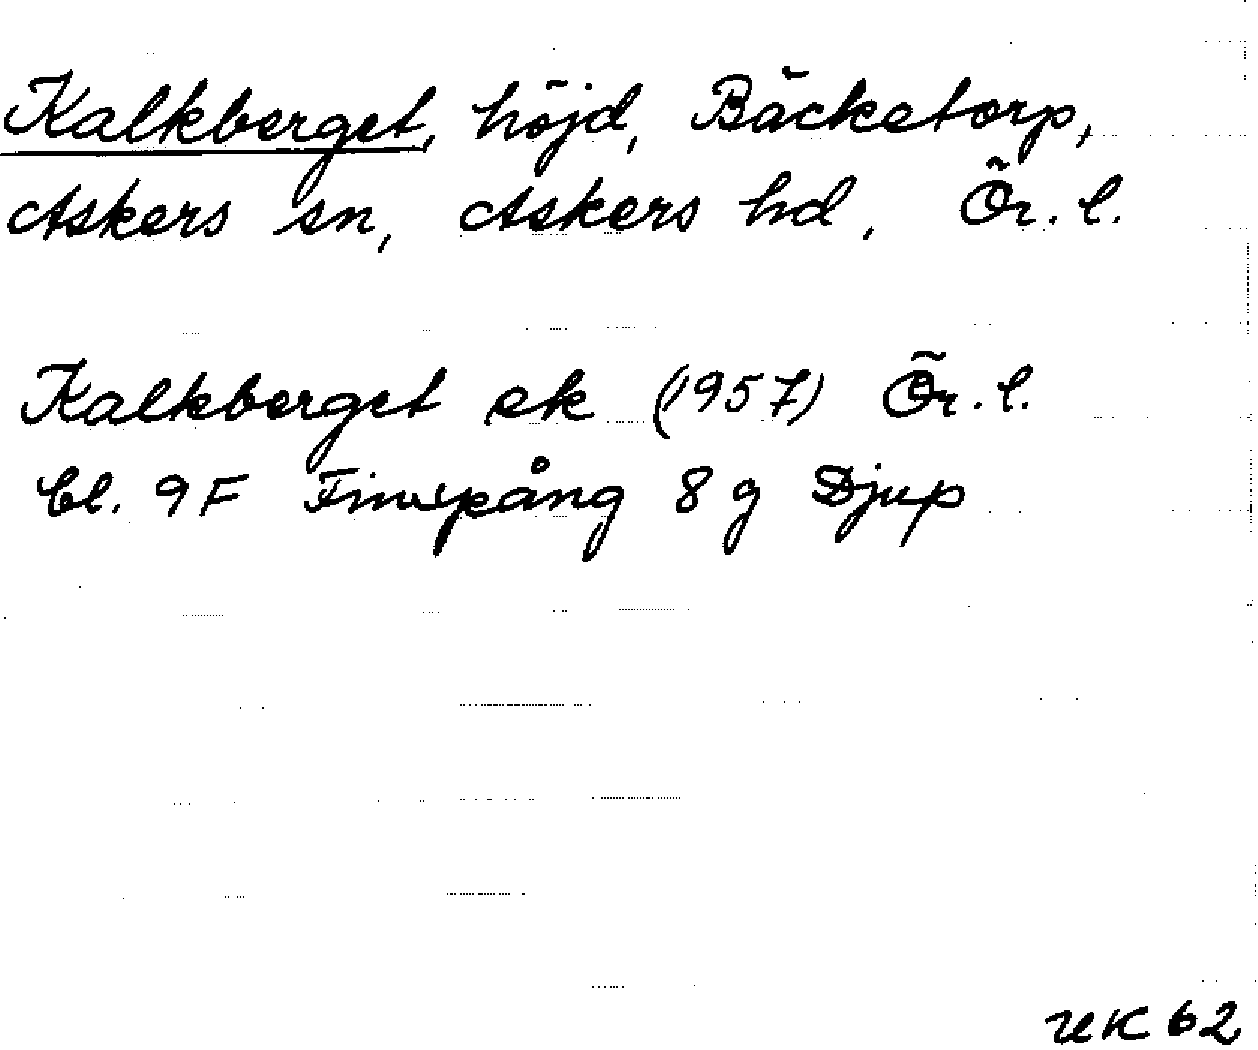 Kalkberget, höjd, Bäcketorp,
Askers sn, Askers hd, Ör. l.
Kalkberget ek (1957) Ör. l.
bl. 9F Finspång 8 g Djup
UK 62